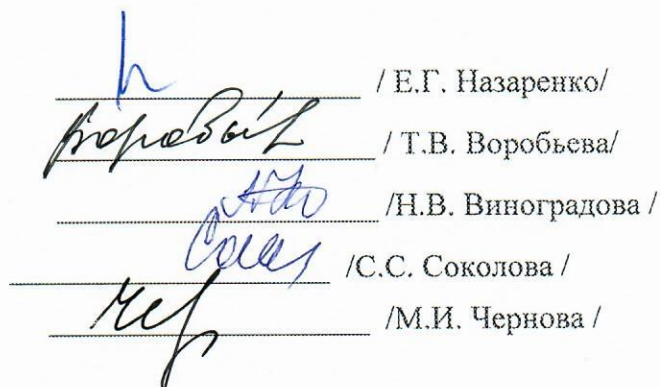 / Е.Г. Назаренко/
/ Т.В. Воробьева/
/Н.В. Виноградова /
/С.С. Соколова /
/М.И. Чернова /